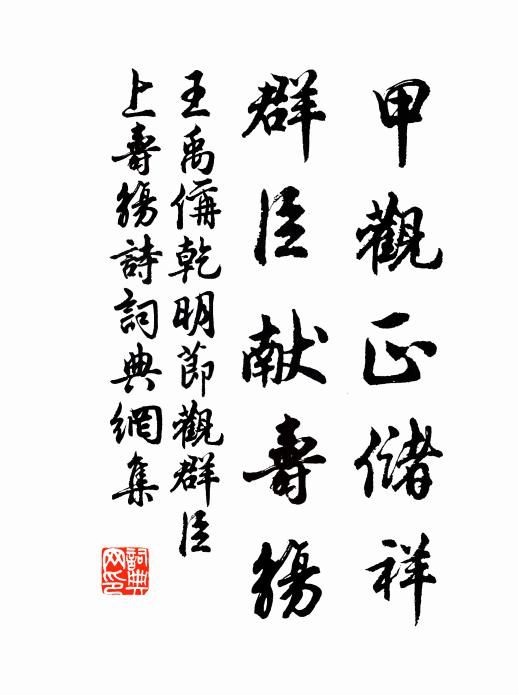 甲觀正儲祥
群臣献壽觴
王禹偁乾明節觀群臣
上壽觴詩詞典網集
詞典
网印